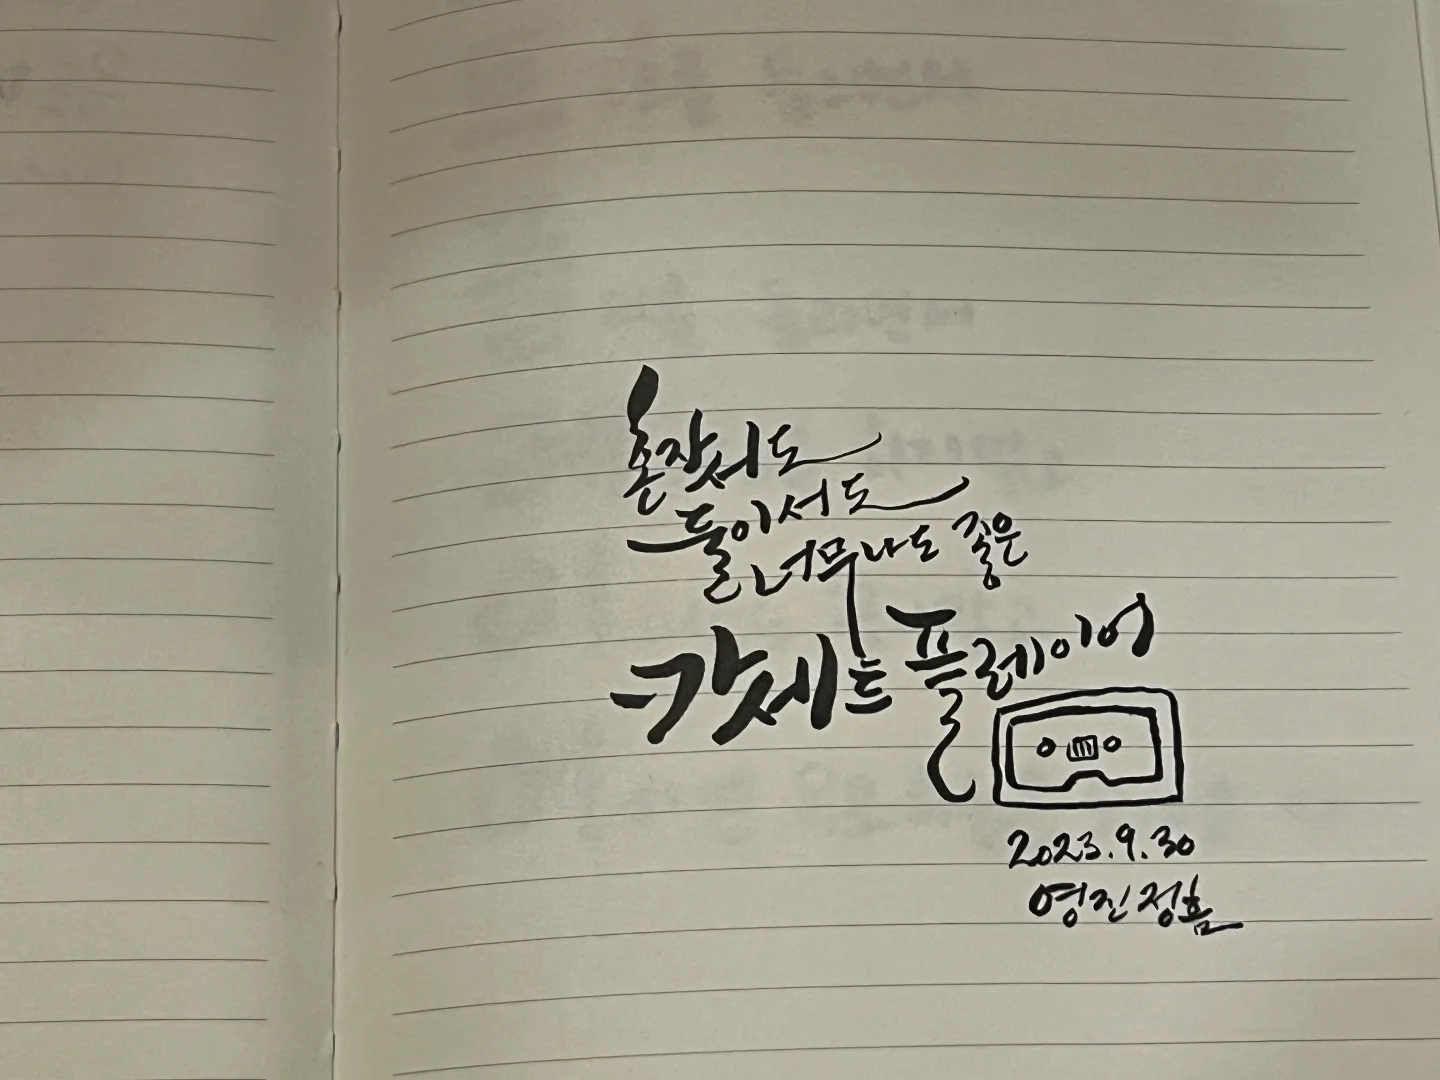 혼자서도
둘이서도
너무나도 좋은
캇세트 플레이어
2023.9.30
영진정흠